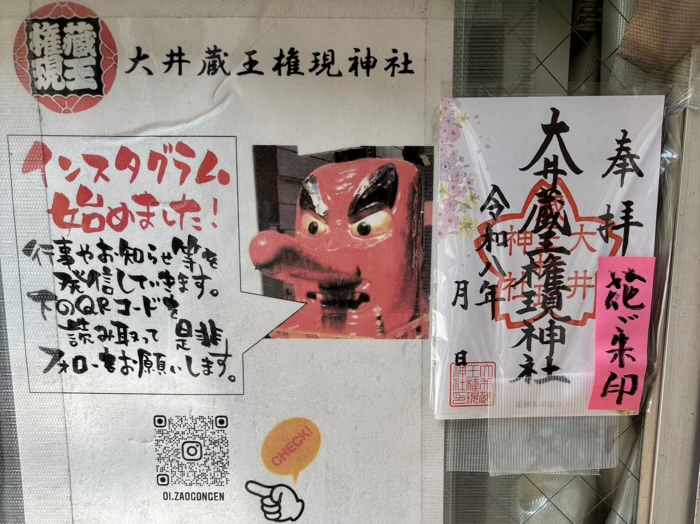 蔵王
権現
大井蔵王権現神社
インスタグラム
始めました!
行事やお知らせ等を
発信していきます。
下のQRコードを
読み取って 是非
フォローをお願いします。
OI.ZAOGONGEN
CHECK!
奉拝
大井蔵王権現神社
令和八年
月
日
大井
神社
花ご朱印